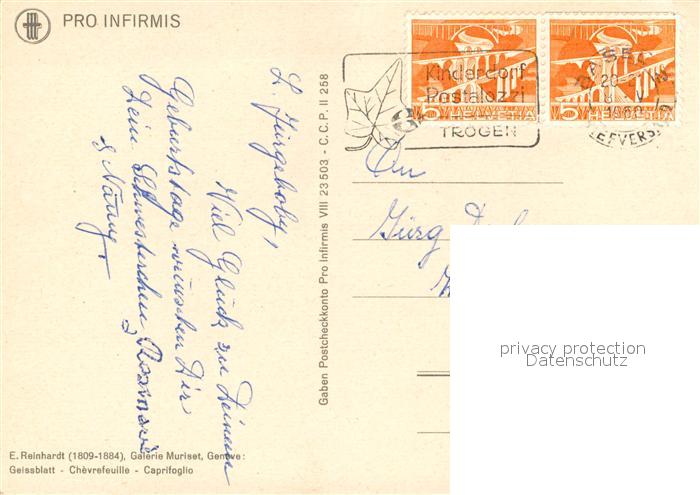 PRO INFIRMIS
5 HELVETIA
5 HELVETIA
Kinderdorf
Pestalozzi
TROGEN
BASEL
20
1962
BRIEFVERSAND
L. Jürgeboby,
Viel Glück zu Deinem
Geburtstage wünschen Dir
Dein Schwesterchen Rosmarie
& Nänny.
Gaben Postcheckkonto Pro Infirmis VIII 23503 - C.C.P. II 258
An
Jürg
privacy protection
Datenschutz
E. Reinhardt (1809-1884), Galerie Muriset, Genève:
Geissblatt - Chèvrefeuille - Caprifoglio